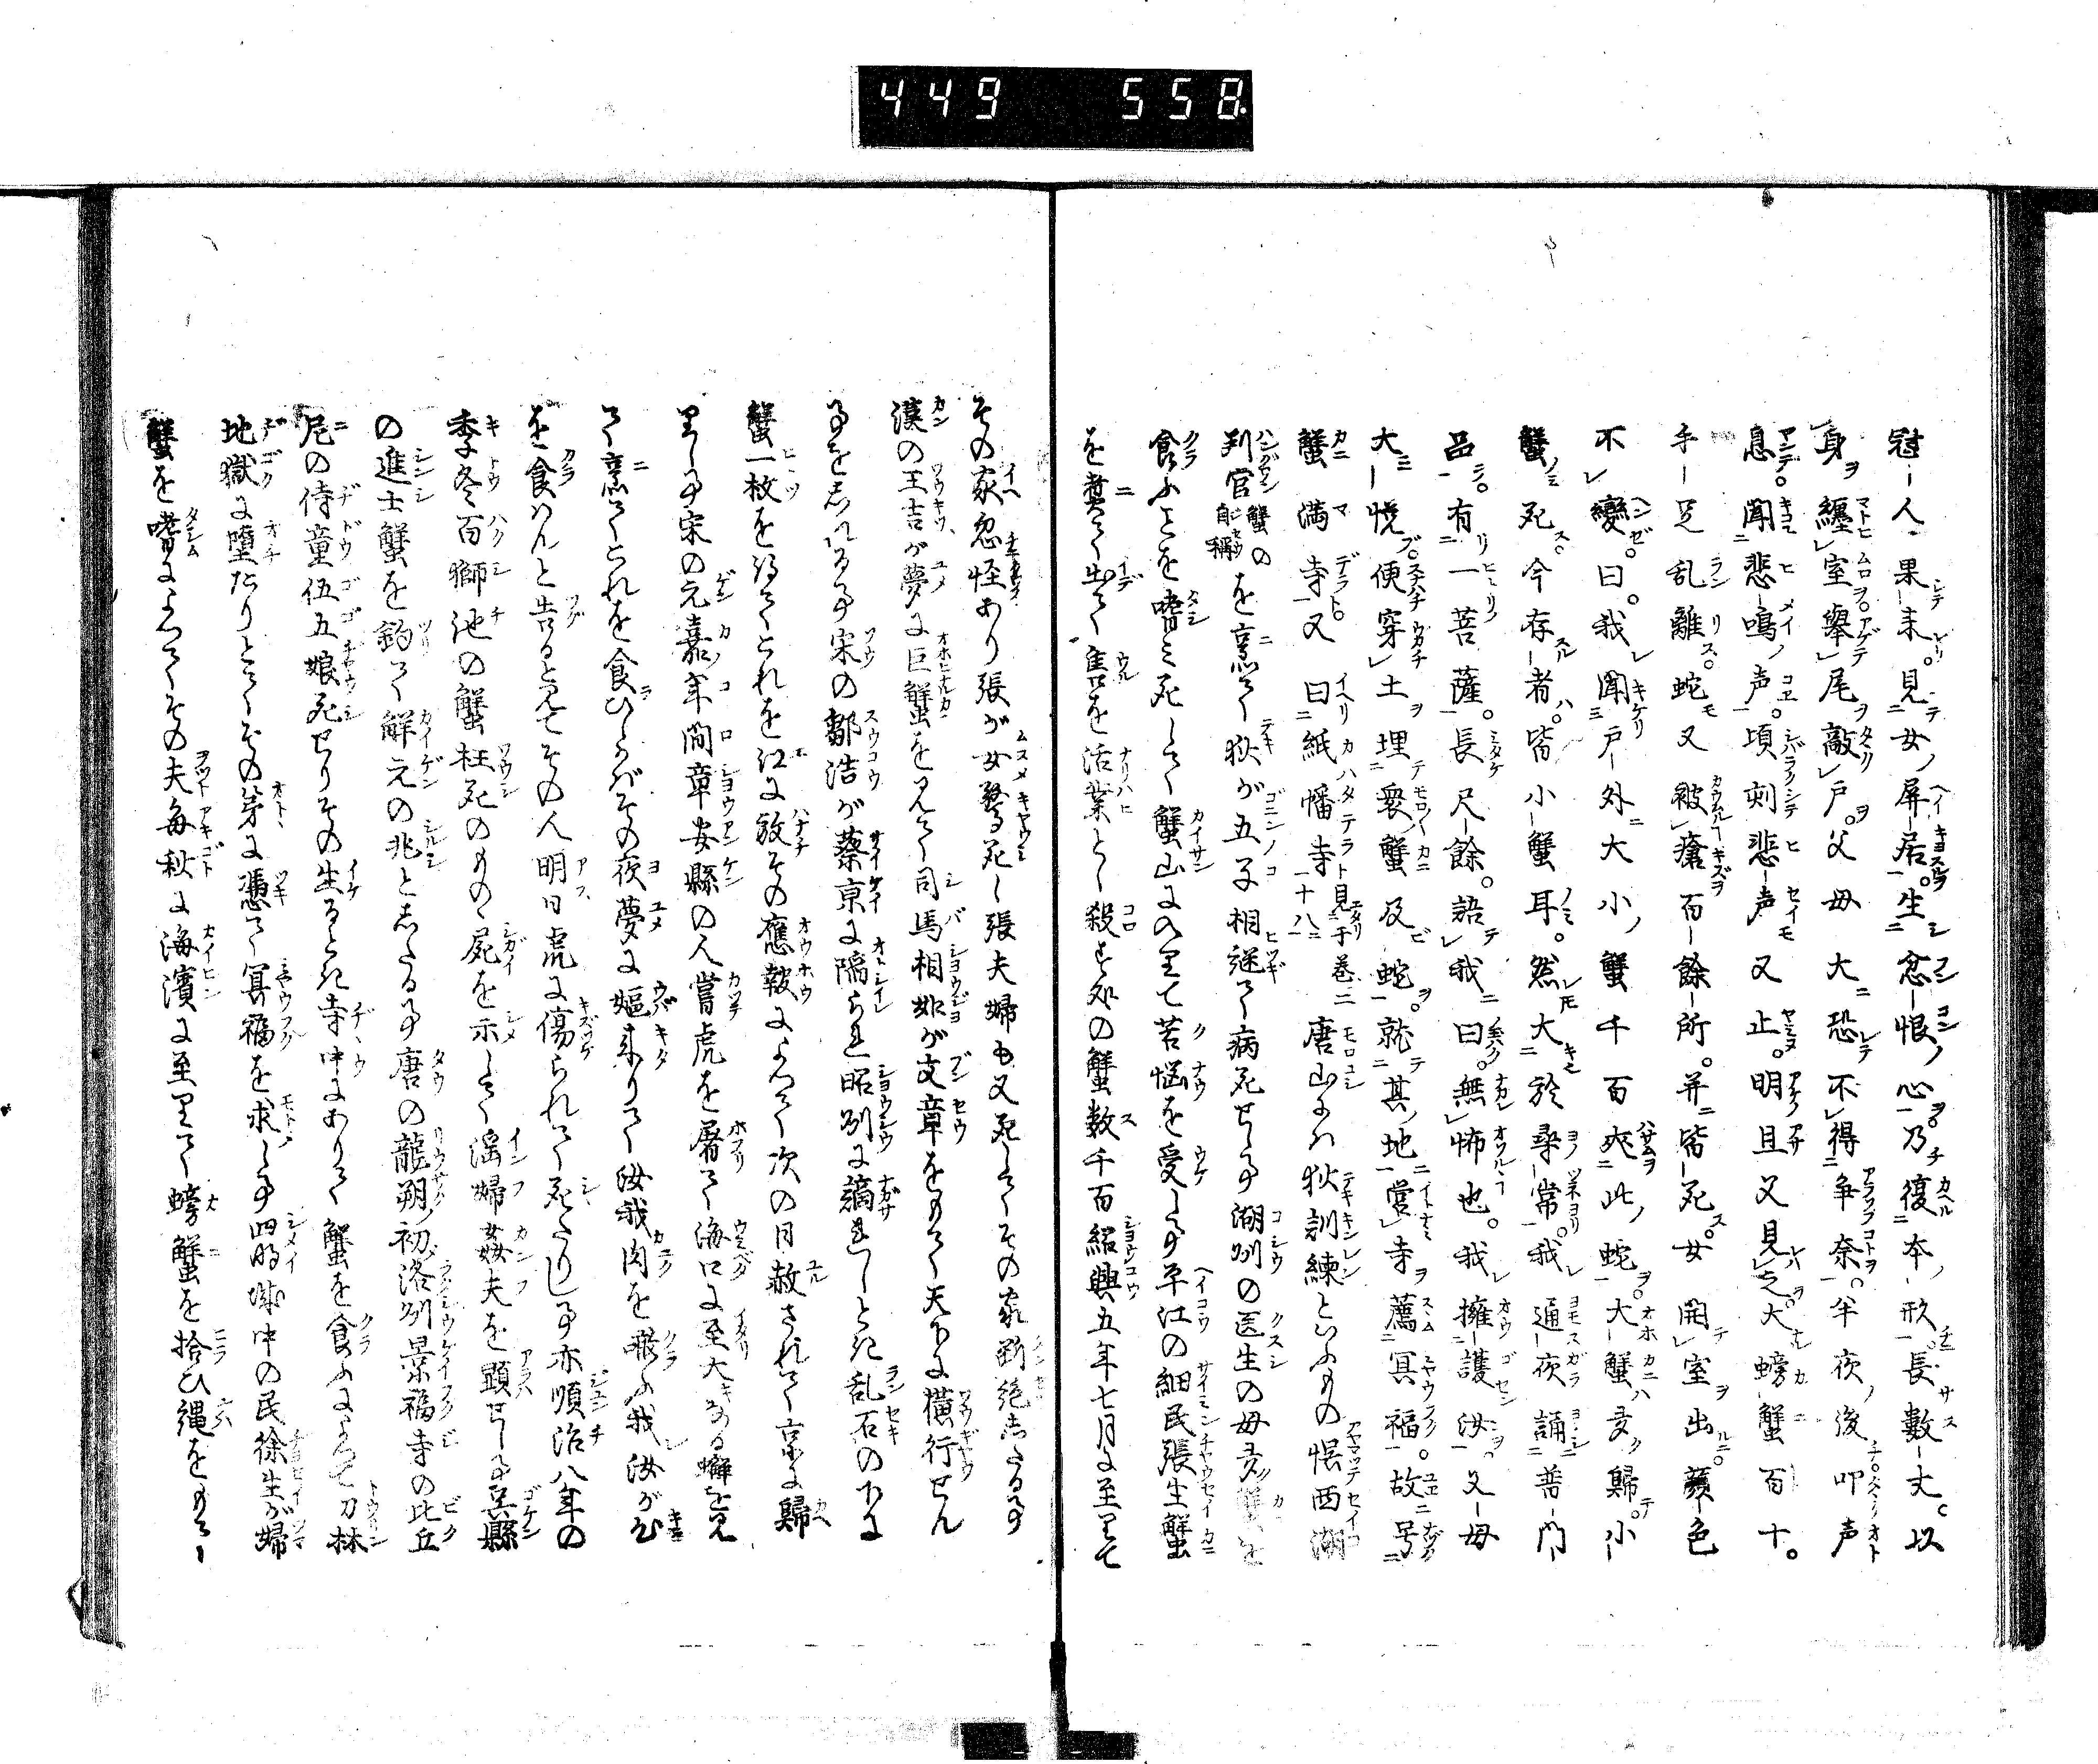 449 558
冠人果来見女屏居生忿恨心乃復本形長數丈以
身纏室舉尾敲戸父母大恐不得争奈半夜後叩声
息聞悲鳴声頃刻悲声又止明旦又見之大螃蟹百十
手足乱離蛇又被瘡百餘所并皆死女開室出顔色
不變曰我聞戸外大小蟹千百夾此蛇大蟹多歸小
蟹死今存者皆小蟹耳然大於尋常我通夜誦普門
品有一菩薩長尺餘語我曰無怖也我擁護汝父母
大悦便穿土埋衆蟹及蛇就其地営寺薦冥福故号
蟹満寺又曰紙幡寺見于巻二十八唐山にハ狄訓練といふもの惧西湖
判官蟹の自稱を烹て狄が五子相継て病死せし事湖州の医生の母多く蟹を
食ふことを嗜み死して蟹山に入りて苦悩を受し事平江の細民張生蟹
を煮て出て售を活業とし殺す処の蟹数千百紹興五年七月に至りて
その家忽怪あり張が女驚死し張夫婦も又死してその家断絶したる事
漢の王吉が夢に巨蟹を見て司馬相如が文章をもて天下に横行せん
事をしれる事宋の鄒浩が蔡京に陥られ昭州に謫れしとき乱石の下に
蟹一枚を得てこれを江に放その應報によつて次の日赦されて京に歸
りし事宋の元嘉年間章安縣の人嘗虎を屠て海口に至大なる蟹を見
て烹てこれを食ひしがその夜夢に嫗来りて汝我肉を喰ふ我汝が心
を食はんと告ると見てその人明日虎に傷られて死たりし事亦順治八年の
季冬百獅池の蟹枉死のもの屍を示して滛婦姦夫を顕せし事呉縣
の進士蟹を釣て解元の兆としたる事唐の龍朔ノ初洛州景福寺の比丘
尼の侍童伍五娘死せりその生るとき寺中にありて蟹を食ふによつて刀林
地獄に墮たりとてその弟に憑て冥福を求し事四明城中の民徐生が婦
蟹を嗜によつてその夫毎秋に海濱に至りて螃蟹を拾ひ縄をもて